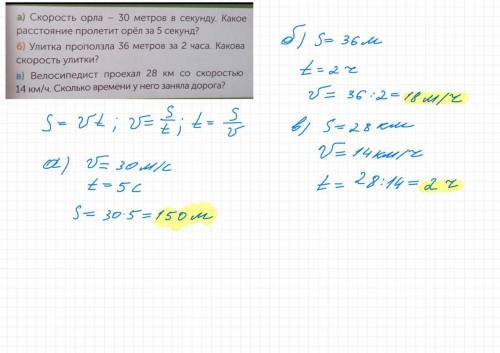 а) Скорость орла – 30 метров в секунду. Какое
расстояние пролетит орёл за 5 секунд?
б) Улитка проползла 36 метров за 2 часа. Какова
скорость улитки?
в) Велосипедист проехал 28 км со скоростью
14 км/ч. Сколько времени у него заняла дорога?
S = vt ; v = S/t ; t = S/v
а) v = 30 м/с
t = 5 с
S = 30·5 = 150 м
б) S = 36 м
t = 2 ч
v = 36 : 2 = 18 м/ч
в) S = 28 км
v = 14 км/ч
t = 28 : 14 = 2 ч